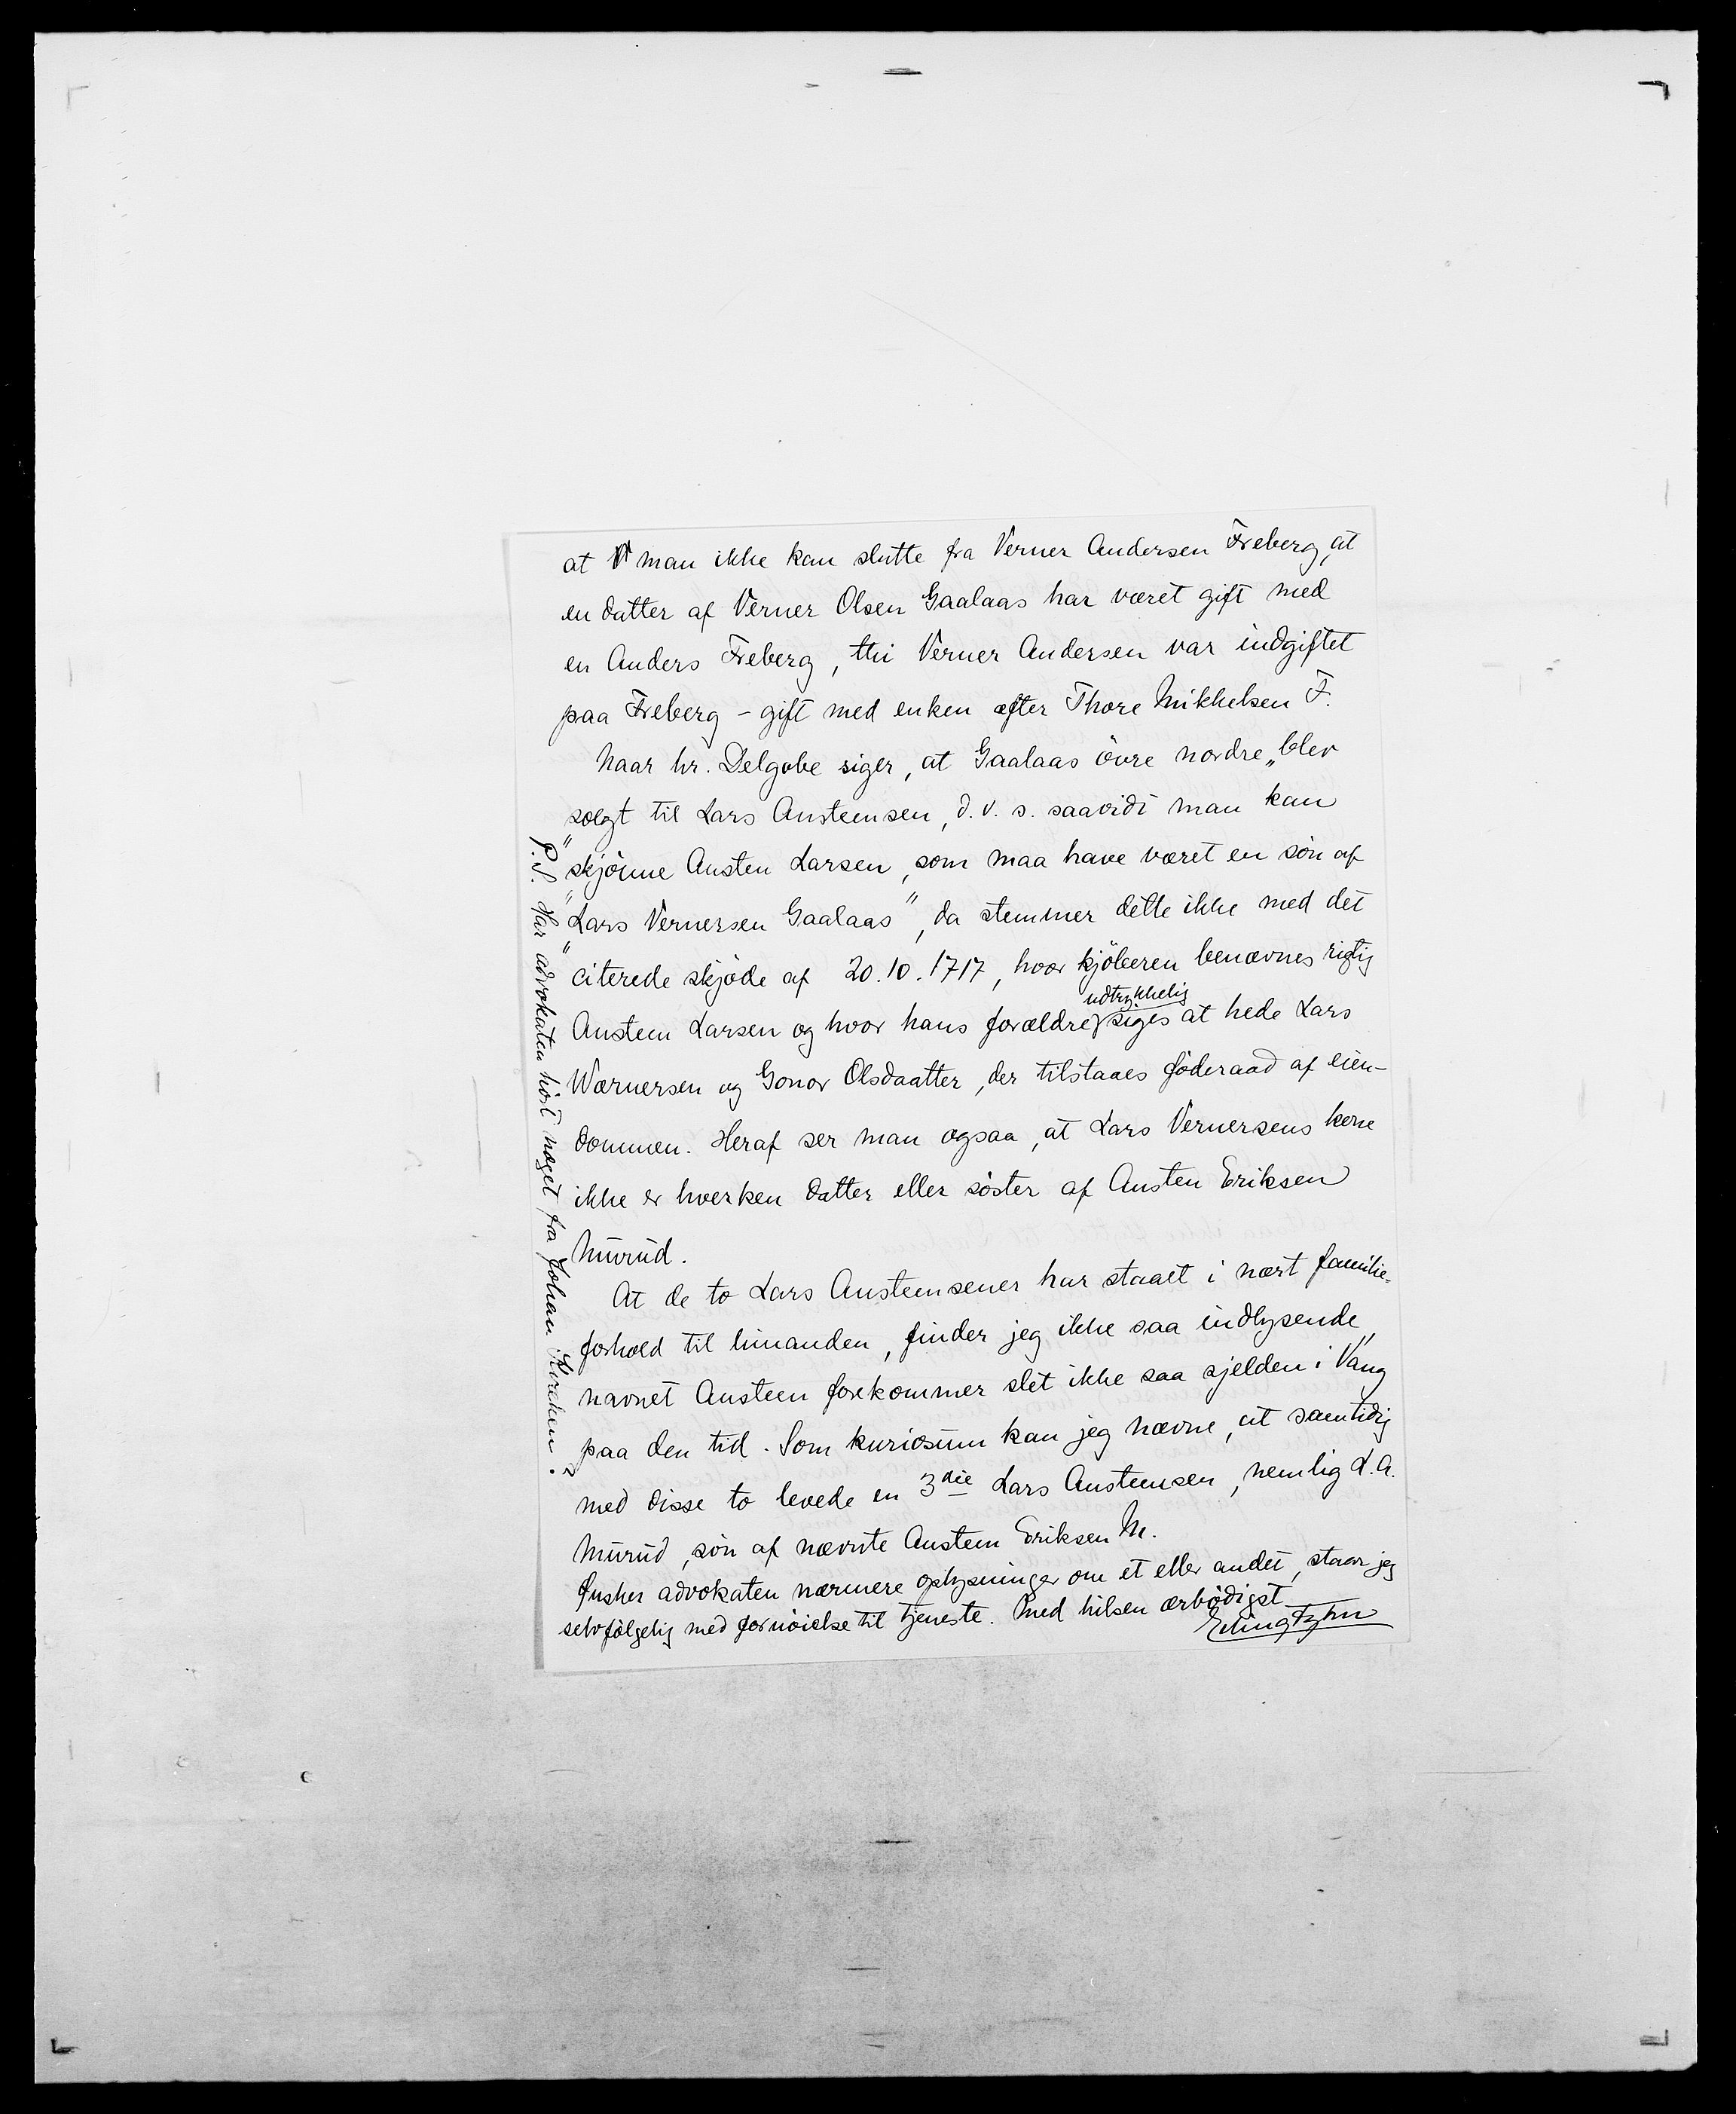 at man ikke kan slutte fra Verner Andersen Freberg, at
en datter af Verner Olsen Gaalaas har været gift med
en Anders Freberg, thi Verner Andersen var indgiftet
paa Freberg – gift med enken efter Thore Mikkelsen F.
Naar hr. Delgobe siger, at Gaalaas övre nordre „blev
„solgt til Lars Austensen, d.v.s. saavidt man kan
„skjönne Austen Larsen, som maa have været en sön af
„Lars Vernersen Gaalaas", da stemmer dette ikke med det
citerede skjöde af 20.10.1717, hvor kjöberen benævnes rigtig
udtrykkelig
Austen Larsen og hvor hans forældre siges at hede Lars
Wærnersen og Gonor Olsdaatter, der tilstaaes föderaad af eien-
dommen. Heraf ser man ogsaa, at Lars Vernersens kone
ikke er hverken datter eller söster af Austen Eriksen
Mürüd.
At de to Lars Austensener har staaet i nært familie-
forhold til hinanden, finder jeg ikke saa indlysende,
navnet Austen forekommer slet ikke saa sjelden i Vang
paa den tid. Som kuriosum kan jeg nævne, at samtidig
med disse to levede en 3die Lars Austensen, nemlig L.A.
Mürüd, sön af nævnte Austen Eriksen M.
Önsker advokaten nærmere oplysninger om et eller andet, staar jeg
selvfölgelig med fornöielse til tjeneste. Med hilsen ærbödigst
P.S. Har advokaten hört noget fra Johan Kræken?